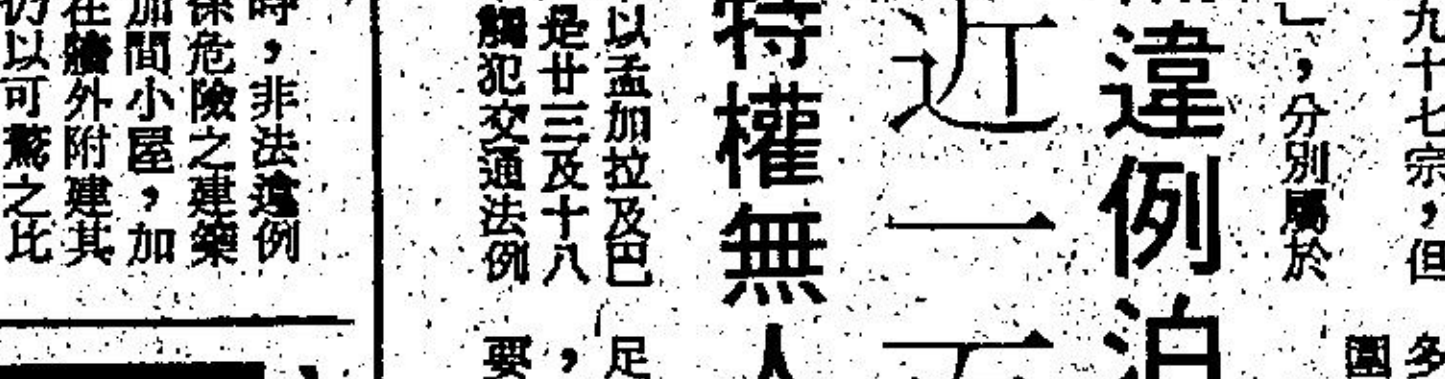 九十七宗，但
」，分別屬於
違例泊
近一
特權無人
以孟加拉及巴
是廿三及十八
觸犯交通法例
多
圍
足
，
要
時，非法違例
危險之建築
加間小屋，加
在牆外附建其
仍以可驚之比